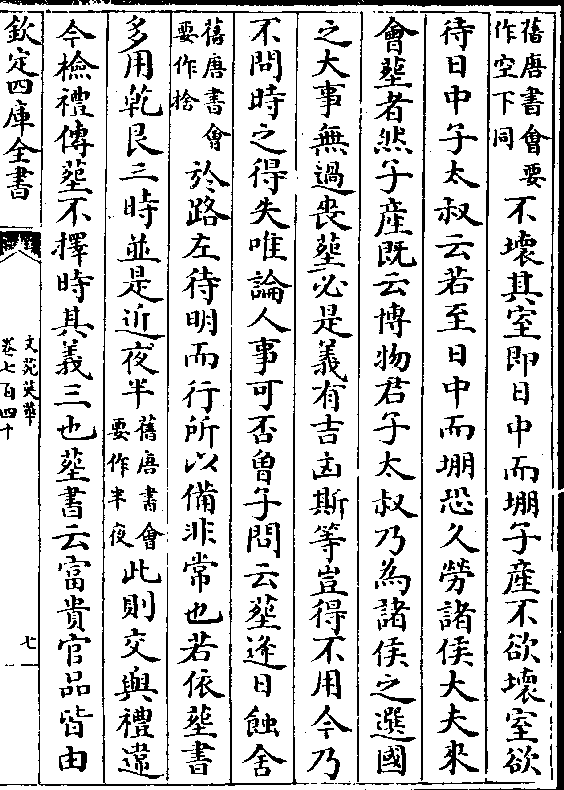 舊唐書會要
作空下同
不壞其室即日中而堋子産不欲壞室欲
待日中子太叔云若至日中而堋恐久勞諸侯大夫來
會塟者然子產既云博物君子太叔乃為諸侯之選國
之大事無過喪塟必是義有吉凶斯等豈得不用今乃
不問時之得失唯論人事可否曾子問云塟逢日蝕舍
舊唐書會
要作捨
於路左待明而行所以備非常也若依塟書
多用乾艮二時並是近夜半
舊唐書會
要作半夜
此則文與禮違
今檢禮傳塟不擇時其義三也塟書云富貴官品皆由
欽定四庫全書
文苑英華
卷七百四十
七